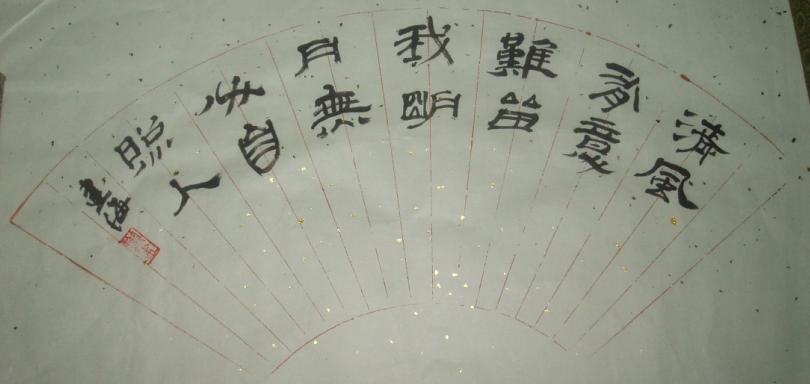 清風
有意
難留
我明
月無
心自
照人
建海